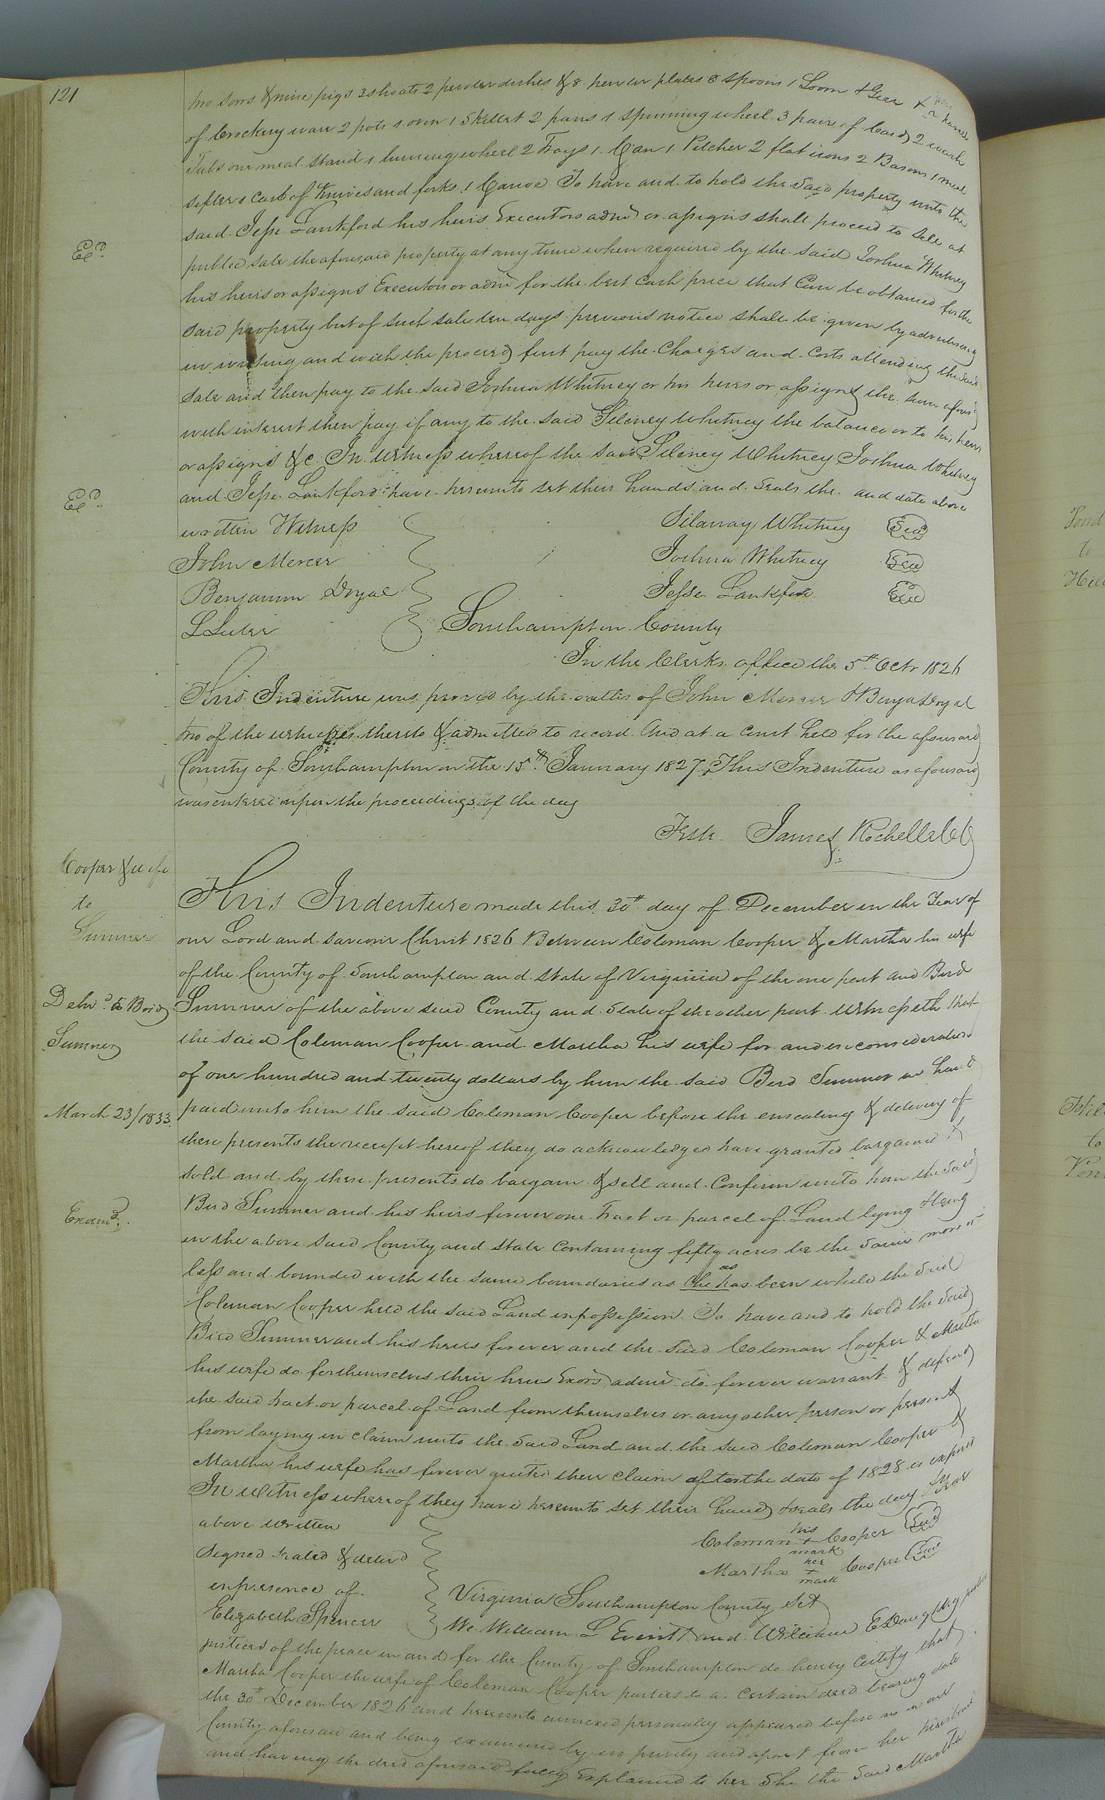 121
two sows & nine pigs 2 shoats 2 pewter dishes & 8 pewter plates 8 spoons 1 Loom & Gear &
of Crockery ware 2 pots 1 oven 1 Skillet 2 pans 1 spinning wheel 3 pair of Cards 2 wash
Tubs one meal stand 1 linning wheel 2 Trays 1 Can 1 Pitcher 2 flat irons 2 Basons 1 meal
sifter 1 Case of Knives and forks 1 Canoe To have and to hold the said property unto the
said Jesse Lankford his heirs Executors admr or assigns shall proceed to sell at
public sale the aforesaid property at any time when required by the said Joshua Whitney
Ex.d
his heirs or assigns Executors or admr for the best cash price that can be obtained for the
said property but of such sale ten days previous notice shall be given by advertising
in writing and with the proceeds first pay the Charges and Costs attending the said
sale and then pay to the said Joshua Whitney or his heirs or assigns the sum aforesd
with interest then pay if any to the said Silaney Whitney the balance or to his heirs
or assigns &c In witness whereof the said Silaney Whitney Joshua Whitney
and Jesse Lankford have hereunto set their hands and Seals the and date above
Ex.d
written Witness
John Mercer
Benjamin Doyal
L Luter
Silaway Whitney Seal
Joshua Whitney Seal
Jesse Lankford Seal
Southampton County
In the Clerks office the 5th Octr 1826
This Indenture was proved by the oaths of John Mercer & Benja Doyal
two of the witnesses thereto & admitted to record And at a Court held for the aforesaid
County of Southampton on the 15th January 1827 This Indenture as aforesaid
was entered upon the proceedings of the day
Teste James Rochelle CC
Cooper & wife
to
Sumner
This Indenture made this 30th day of December in the Year of
our Lord and saviour Christ 1826 Between Coleman Cooper & Martha his wife
of the County of Southampton and state of Virginia of the one part and Bird
Delivd to Bird
Sumner
March 23/1833
Sumner of the above said County and State of the other part Witnesseth that
the said Coleman Cooper and Martha his wife for and in consideration
of one hundred and twenty dollars by him the said Bird Sumner in hand
paid unto him the said Coleman Cooper before the ensealing & delivery of
these presents the receipt hereof they do acknowledge have granted bargained &
sold and by these presents do bargain & sell and Confirm unto him the said
Examd
Bird Sumner and his heirs forever one Tract or parcel of Land lying & being
in the above said County and state Containing fifty acres be the same more or
less and bounded with the same boundaries as
as
she has been while the said
Coleman Cooper held the said Land in possession To have and to hold the said
Bird Sumner and his heirs forever and the said Coleman Cooper & Martha
his wife do for themselves their heirs Exors admrs do forever warrant & defend
the said Tract or parcel of Land from themselves or any other person or persons
from laying in claim unto the said Land and the said Coleman Cooper &
Martha his wife has forever quited their claim after the date of 1828 is expired
In witness whereof they have hereunto set their hands & seals the day & Year
above written
Signed sealed & deliverd
in presence of
Elizabeth Spencer
Coleman his + mark Cooper Seal
Martha her + mark Cooper Seal
Virginia Southampton County Sct
We William L Everitt and William E Daughtry
justices of the peace in and for the County of Southampton do hereby Certify that
Martha Cooper the wife of Coleman Cooper parties to a certain deed bearing date
the 30th December 1826 and hereunto annexed personally appeared before us in our
County aforesaid and being examined by us privily and apart from her husband
and having the deed aforesaid fully explained to her She the said Martha